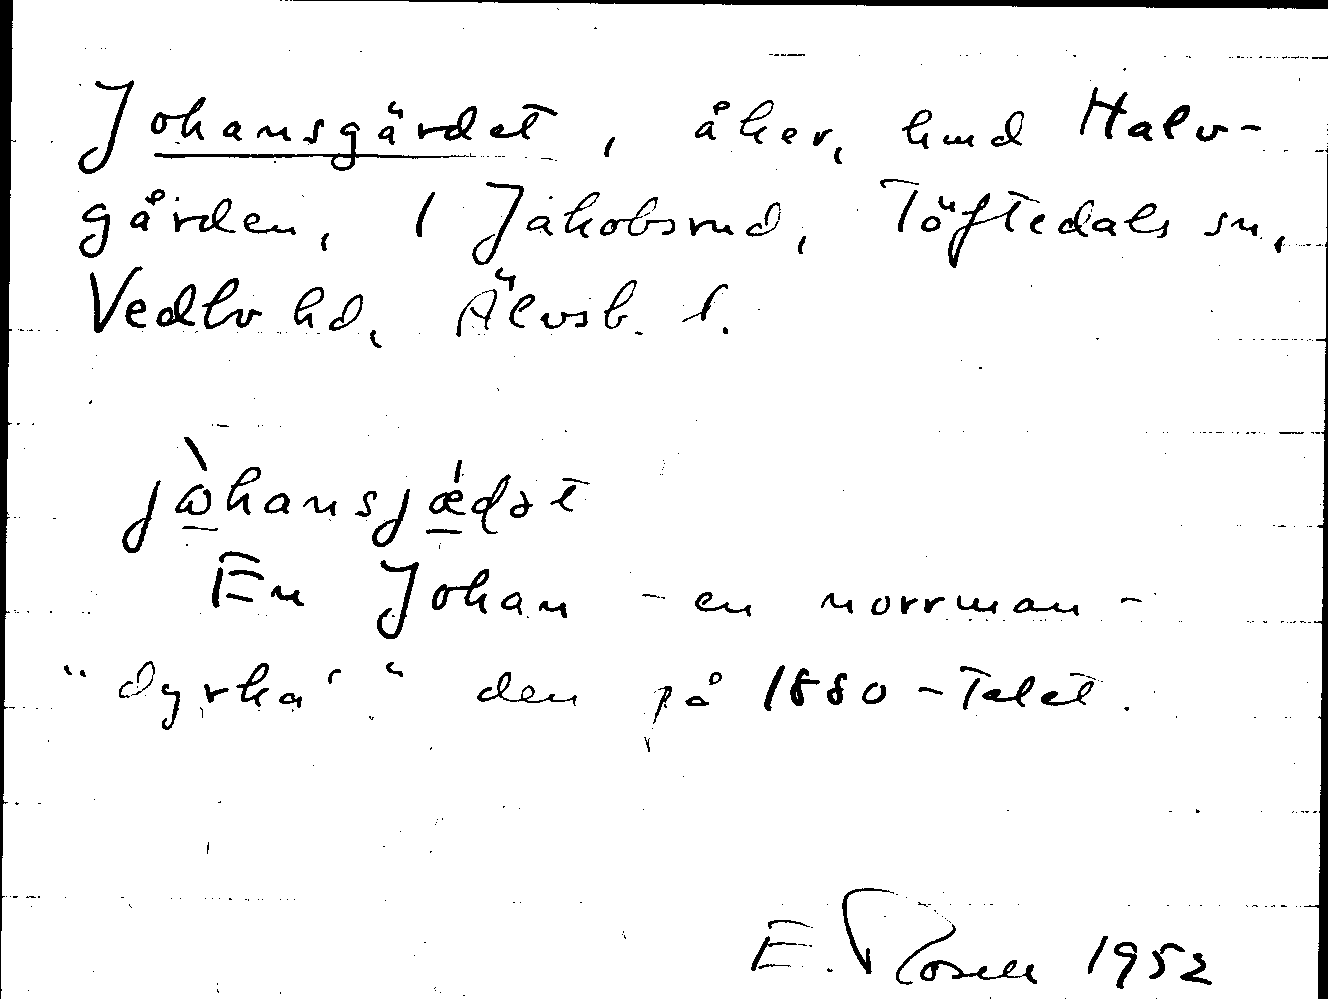 Johansgärdet, åker, hmd Halv-
gården, 1 Jakobsrud, Töftedals sn,
Vedbo hd, Älvsb. l.
jòhansjǽdət
En Johan - en norrman -
"dyrka'" den på 1880-talet.
E. Rosell 1952